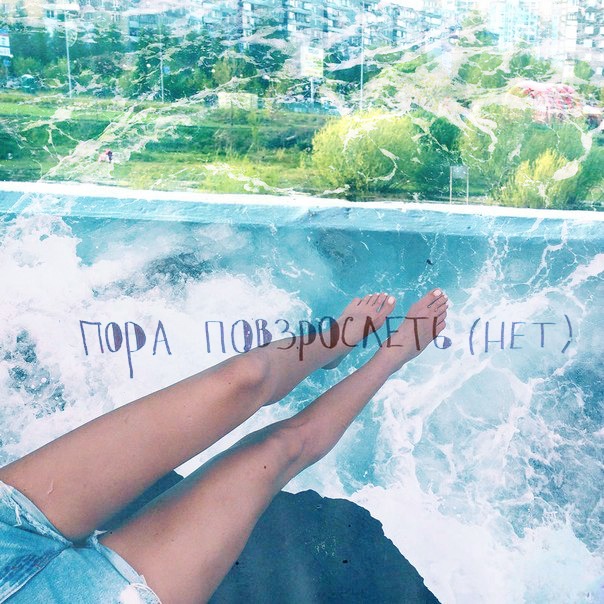 ПОРА ПОВЗРОСЛЕТЬ (НЕТ)